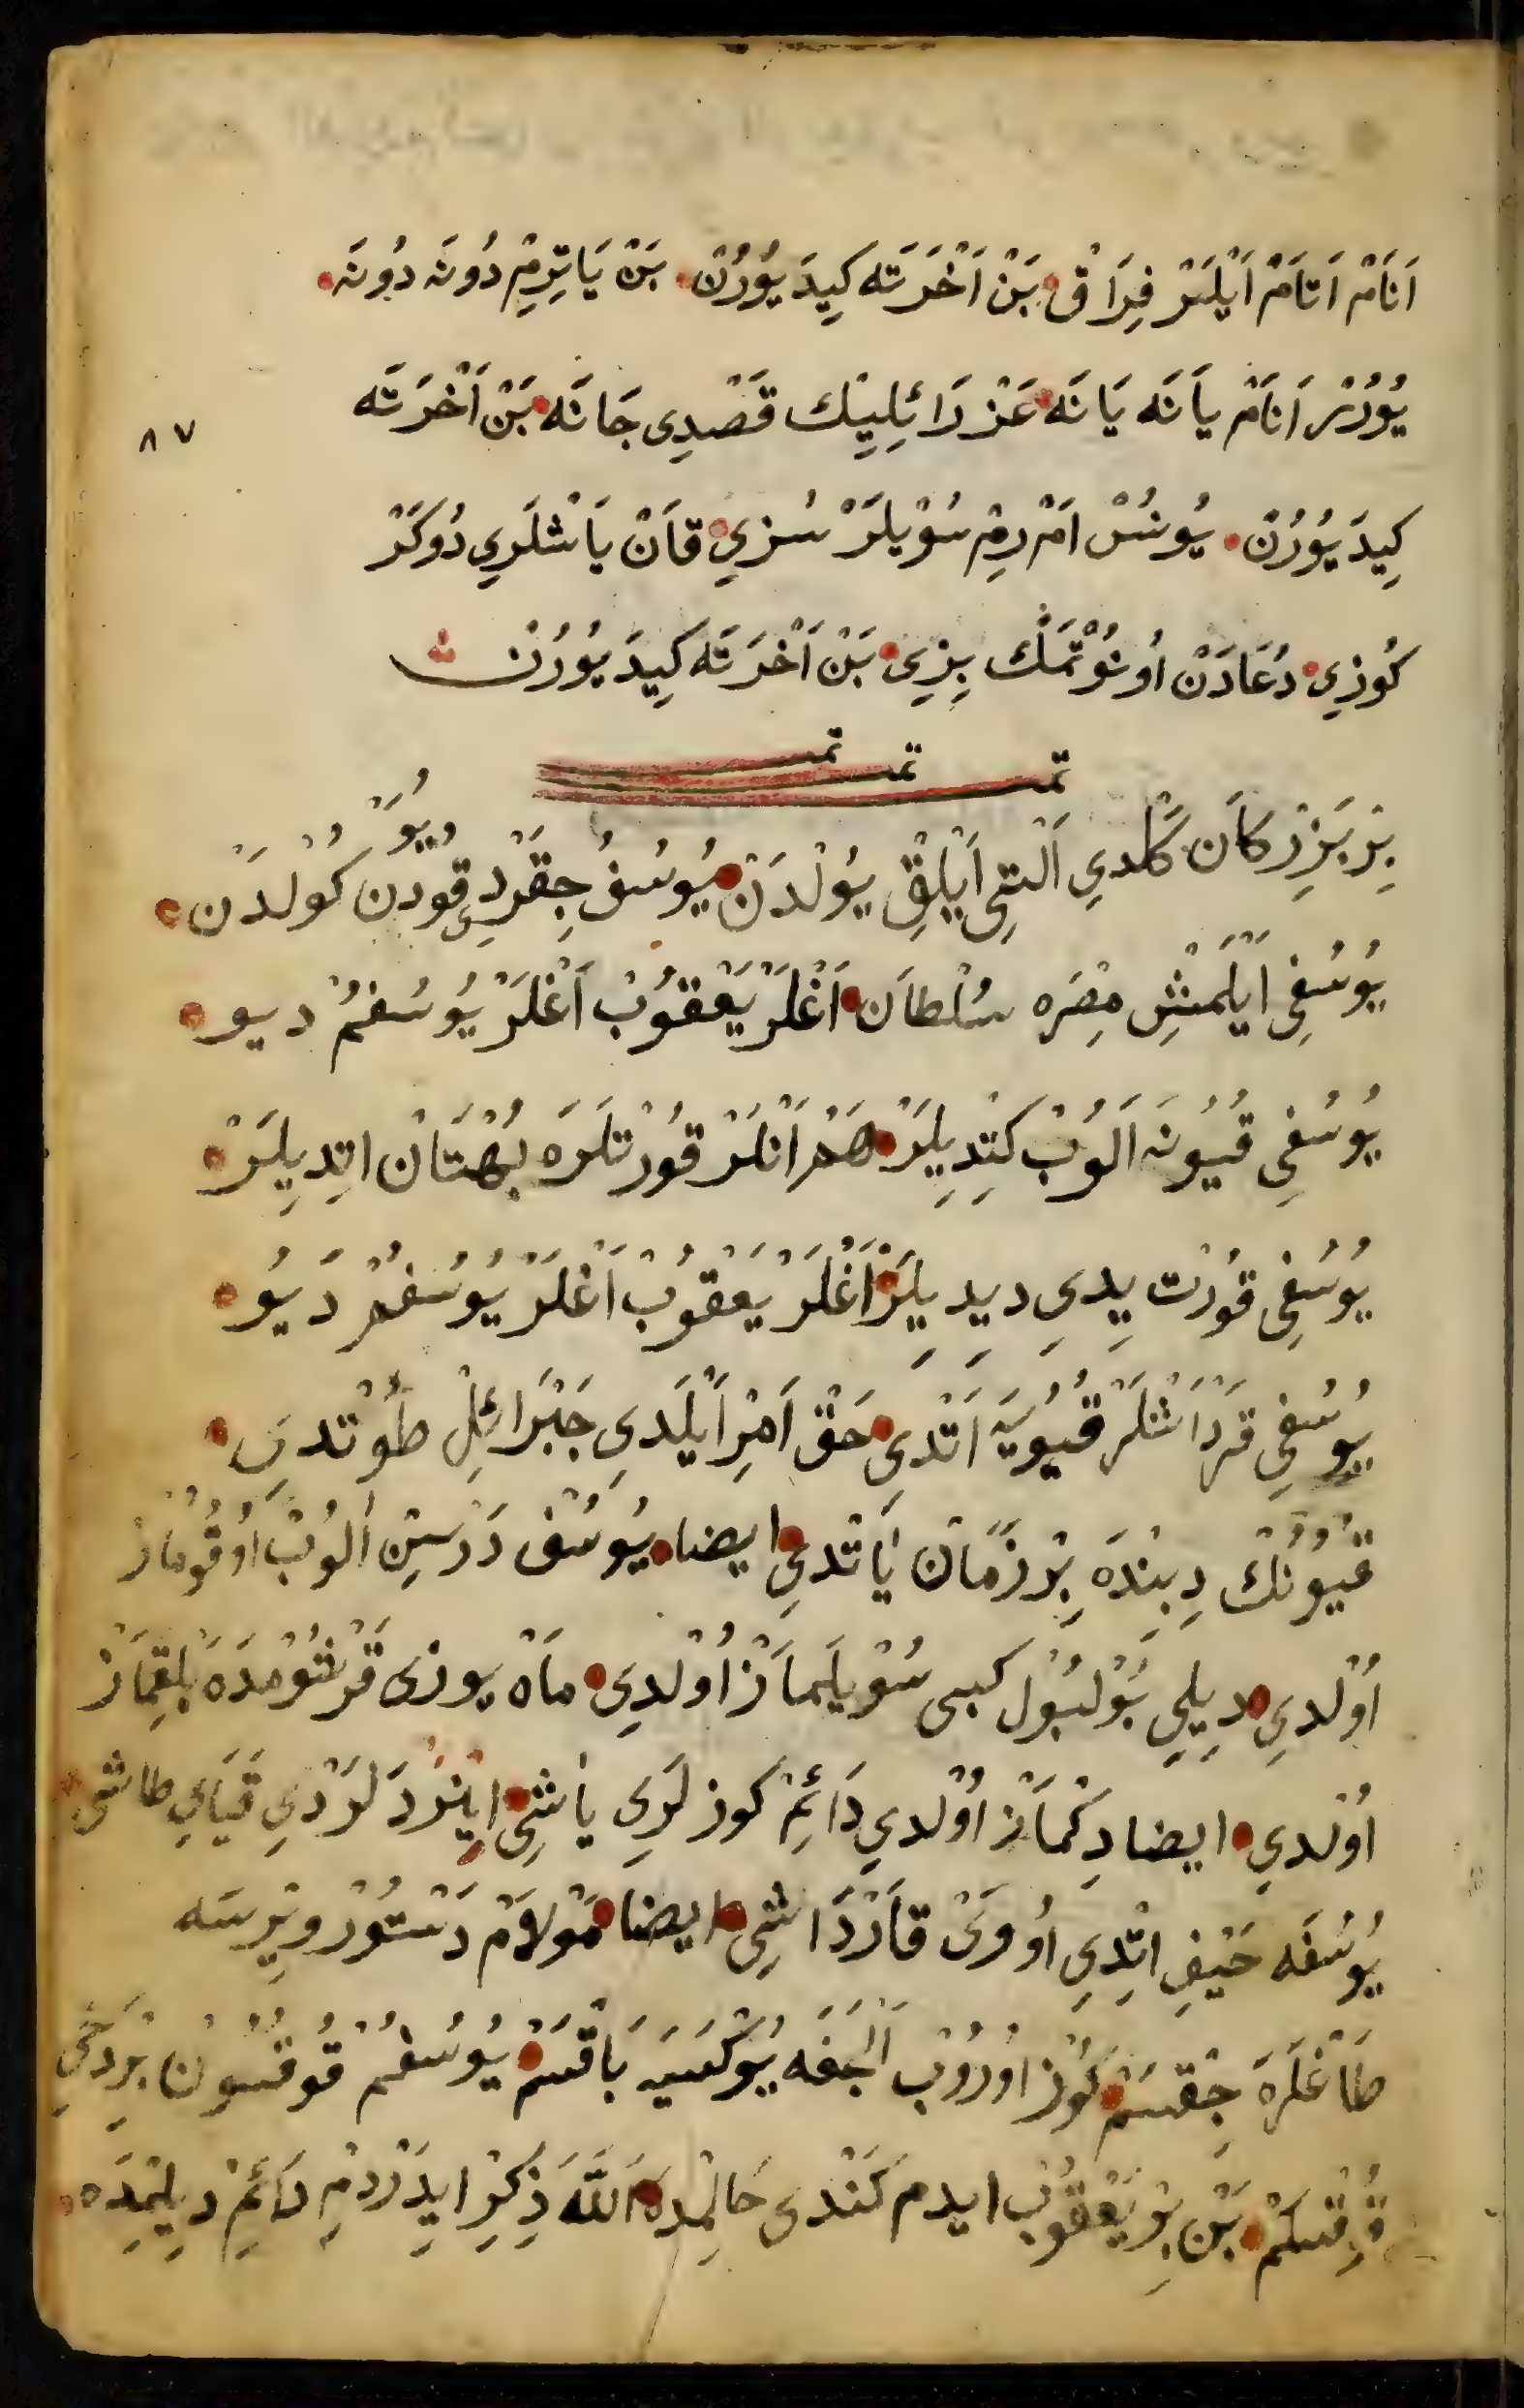 اَنَامْ اَتَامْ اَيْلَرْ فِرَاقْ بَنْ اَخْرَتَه كِيدَيُوُرُنْ بَنْ يَاتِرِمْ دُونَه دُونَه
يُوُرُرْ اَنَامْ يَانَه يَانَه عَزْرَائِلِيڭ قَصْدِى جَانَه بَنْ اَخْرَتَه
٨٧
كِيدَيُوُرُنْ يُونُسْ اَمْرِمْ سُوْيلَرْ سُزِي قَانْ يَاشْلَرِي دُوكَرْ
كُوزِي دُعَادَنْ اُونُوْتْمَڭ بِزِي بَنْ اَخْرَتَه كِيدَيُوُرُنْ
تمت تمت تمت
بِرْ بَزِرْكَان كَلْدِي اَلْتِي اَيْلِقْ يُوْلْدَنْ يُوسُفُ چِقَرْدِي قُوُدن كُولْدَن
ديُو
يُوسُفِي اَيْلَمِشْ مِصْرَه سُلْطَان اَغْلَرْ يَعْقُوُبْ اَغْلَرْ يُوسُفُمْ ديو
يُوسُفِي قُيُونَه اَلُوُبْ كِتْدِيلَرْ هَمْ اَنْلَرْ قُورْتلَرَه بُهْتَانْ اِتدِيلَرْ
يُوسُفِي قُوُرْت يِدِي دِيدِيلَرْ اَغْلَرْ يَعْقُوُبْ اَغْلَرْ يُوسُفُمْ دَيُو
يُوسُفِي قَرْدَاشْلَرْ قُيُويَه اَتْدِي حَقْ اَمْرْ اَيْلَدِي جَبْرَائِلْ طُوْتدِي
قُيُونُڭ دِبِنْدَه بِرْ زَمَانْ يَاتْدِي ايضا يُوسُفْ دَرْسِنْ اَلُوبْ اُوقُومَازْ
اُوْلْدِي دِيلِي بُوْلبُوْل كبى سُوْيلَمَازْ اُوْلْدِي مَاه يوزى قَرْشُوْمْدَه بَلْقِمَازْ
اُوْلْدِي ايضا دِكْمَازْ اُوْلْدِي دَائِمْ كوزلَرِي يَاشِي اِينْرْدَلَرْدِي قَيَايِ طاشى
يُوسُفَه حَيْفِ اِتْدِي اُووَىْ قَارْدَاشِي ايضا مَوْلَامْ دَسْتُوْرْ وِيْرِسَه
طَاغْلَرَه چِقْسَمْ كُوْز اوُرُوْب اَلْچَغَه يُوْكْسَيَه بَاقْسَمْ يُوسُفُمْ قُوقُسُون بِرْدَخِي
قُوقْسَمْ بَنْ بِرْ يَعْقُوُبْ ايدم كَنْدى حَالِمْدَه اَللَّه ذِكْرْ ايدَرْدِمْ دَائِمْ دِيلِمْدَه